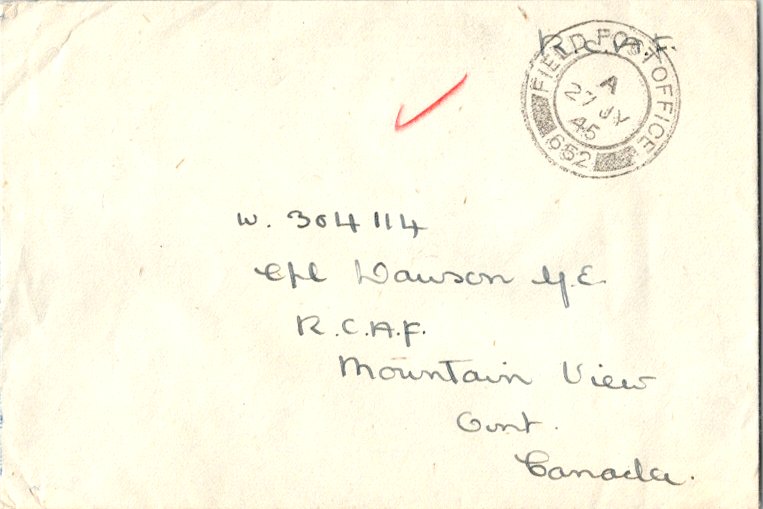 R.C.A.F.
FIELD POST OFFICE
A
27 JY
45
652
W. 304114
Cpl Dawson Y.E.
R.C.A.F.
Mountain View
Ont.
Canada.